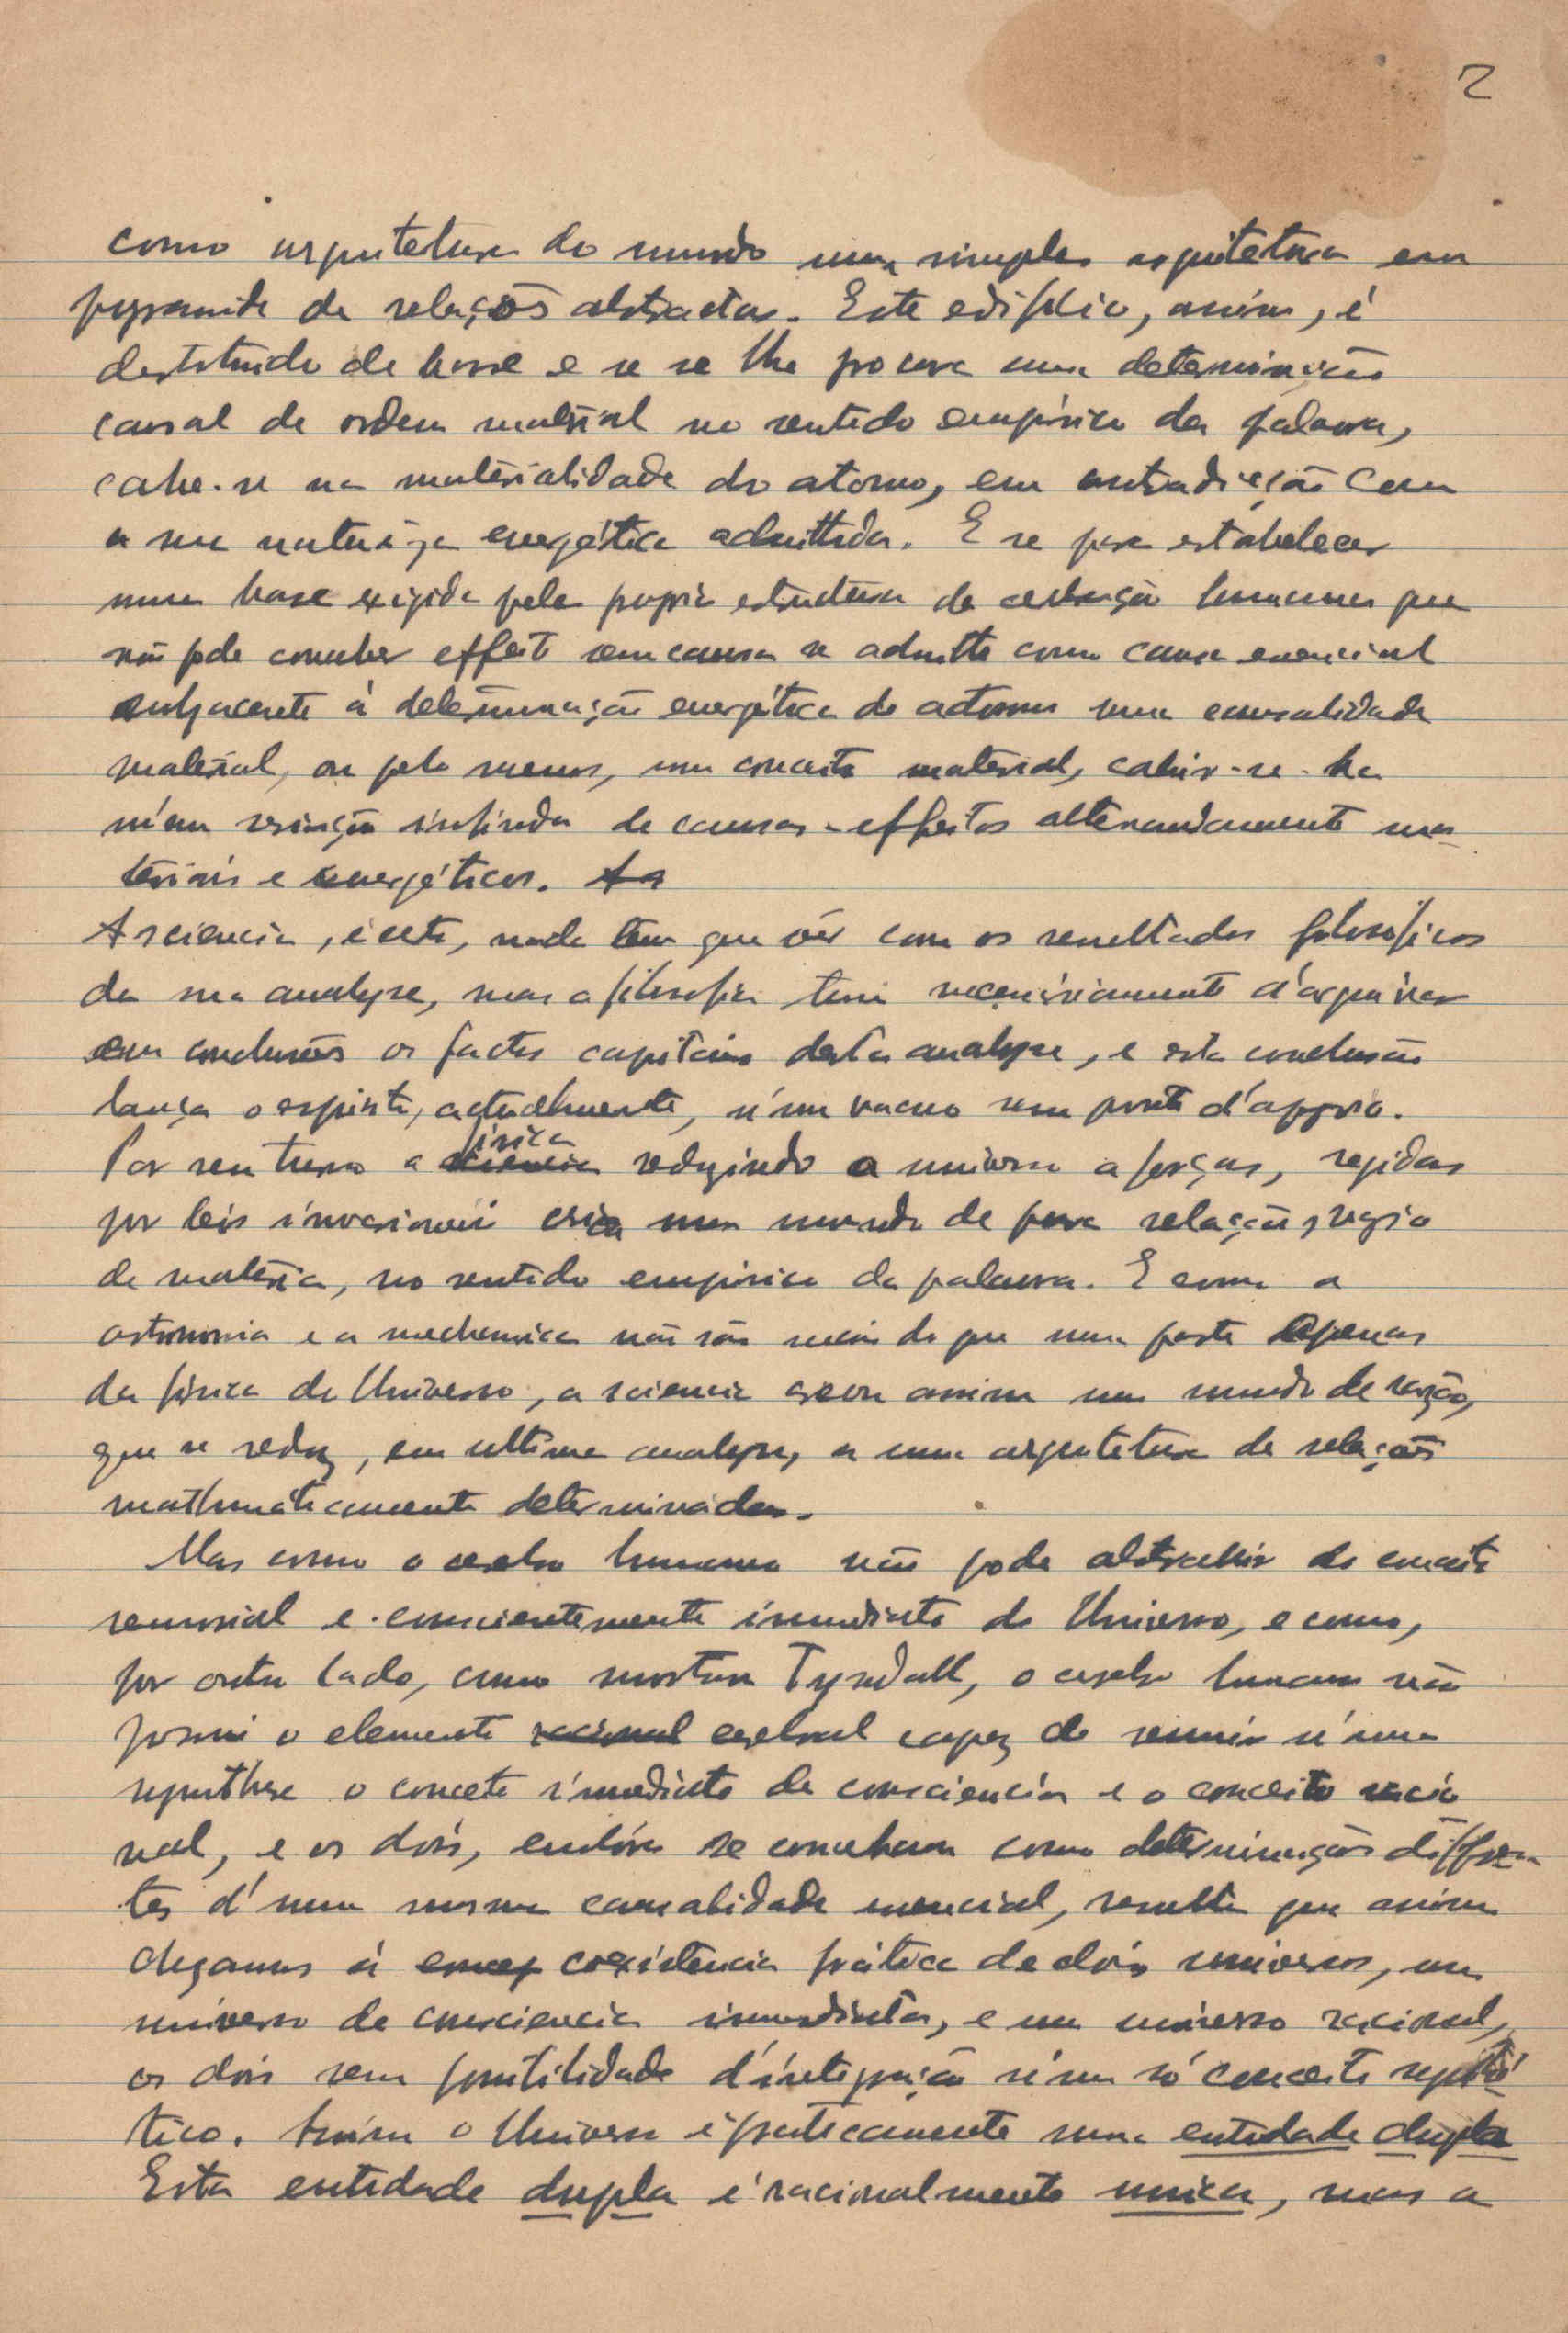 2
como arquitetura do mundo uma simples arquitetura em
pyramide de relações abstractas. Este edificio, assim, é
destituido de base e se se lhe procura uma determinação
causal de ordem material no sentido empirico da palavra,
cahe-se na materialidade do atomo, em contradicção com
a sua natureza energética admittida. E se para estabelecer
uma base exigida pela propria estructura da cerebração humana que
não pode conceber effeito sem causa se admitte como causa essencial
subjacente á determinação energética do actomo uma causalidade
material, ou pelo menos, um conceito material, cahir-se-ha
n'uma seriação infinda de causas-effeitos alternandamente ma-
teriais e energéticos. As
A sciencia, é certo, nada tem que vêr com os resultados filosoficos
da sua analyse, mas a filosofia tem necessariamente d'arquivar
em conclusões os factos capitáes desta analyse, e esta conclusão
lança o espirito, actualmente, n'um vacuo sem ponto d'appoio.
Por seu turno a sciencia fisica reduzindo o universo a forças, regidas
por leis invariaveis cria um mundo de pura relação, vazio
de materia, no sentido empirico da palavra. E como a
astronomia e a mechanica não são mais do que uma parte apenas
da fisica do Universo, a sciencia creou assim um mundo de razão,
que se reduz, em ultima analyse, a uma arquitetura de relações
mathematicamente determinadas.
Mas como o cerebro humano não pode abstrahir do conceito
sensorial e conscientemente immediato do Universo, e como,
por outro lado, como mostrou Tyndall, o cerebro humano não
possui o elemento racional cerebral capaz de reunir n'uma
synthese o conceito immediato da consciencia e o conceito racio
nal, e os dois, embóra se concebam como determinações differen
tes d'uma mesma causalidade essencial, resulta que assim
chegamos á concep coexistencia prática de dois universos, um
universo de consciencia immediata, e um universo racional,
os dois sem possibilidade d'integração n'um só conceito synthé-
tico. Assim o Universo é praticamente uma entidade dupla
Esta entidade dupla é racionalmente unica, mas a